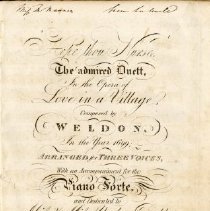 Hope thou Nurse,
The admired Duett,
In the Opera of
Love in a Village,
Composed by
WELDON,
In the Year 1699,
ARRANGED for THREE VOICES,
With an Accompaniment for the
Piano Forte,
and Dedicated to